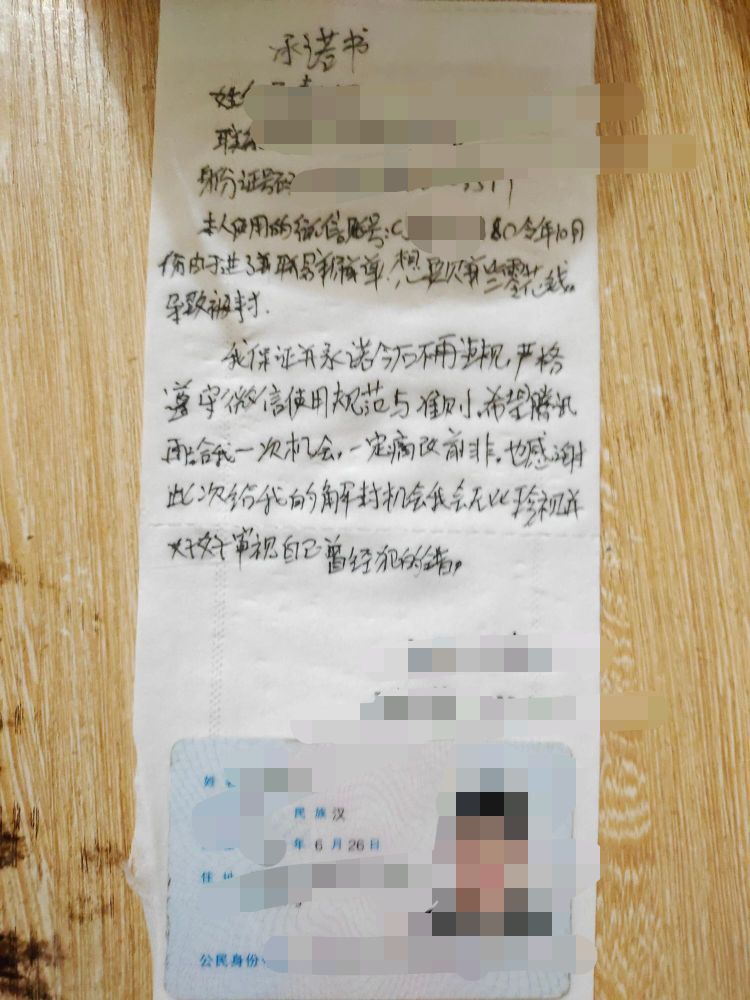 承诺书
姓
联系
身份证号码
本人使用的微信账号:C 80今年10月
份由于进了兼职号刷单,想要兼些零花钱。
导致被封.
我保证并承诺今后不再违规,严格
遵守微信使用规范与准则,希望腾讯
再给我一次机会,一定痛改前非,也感谢
此次给我的解封机会我会无比珍视并
好好审视自己曾经犯的错。
姓
民族汉
年6月26日
住址
公民身份